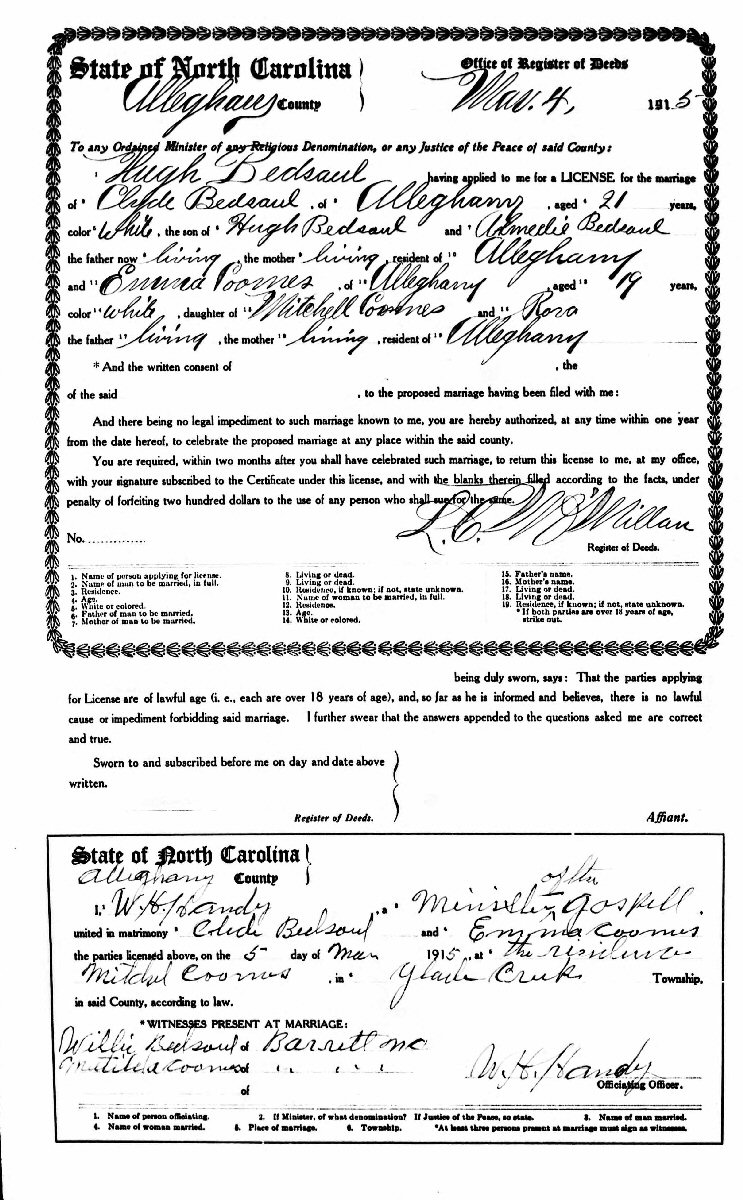 State of North Carolina
Office of Register of Deeds
Alleghany County
Mar. 4, 1915
To any Ordained Minister of any Religious Denomination, or any Justice of the Peace of said County:
Hugh Bedsaul having applied to me for a LICENSE for the marriage
of Clyde Bedsaul, of Alleghany, aged 21 years,
color white, the son of Hugh Bedsaul and Almedie Bedsaul
the father now living, the mother living, resident of Alleghany
and Emma Coomes, of Alleghany, aged 19 years,
color white, daughter of Mitchell Coomes and Rora
the father living, the mother living, resident of Alleghany
* And the written consent of , the
of the said , to the proposed marriage having been filed with me:
And there being no legal impediment to such marriage known to me, you are hereby authorized, at any time within one year
from the date hereof, to celebrate the proposed marriage at any place within the said county.
You are required, within two months after you shall have celebrated such marriage, to return this license to me, at my office,
with your signature subscribed to the Certificate under this license, and with the blanks therein filled according to the facts, under
penalty of forfeiting two hundred dollars to the use of any person who shall sue for the same.
No...............
Register of Deeds.
1. Name of person applying for license.
2. Name of man to be married, in full.
3. Residence.
4. Age.
5. White or colored.
6. Father of man to be married.
7. Mother of man to be married.
8. Living or dead.
9. Living or dead.
10. Residence, if known; if not, state unknown.
11. Name of woman to be married, in full.
12. Residence.
13. Age.
14. White or colored.
15. Father's name.
16. Mother's name.
17. Living or dead.
18. Living or dead.
19. Residence, if known; if not, state unknown.
* If both parties are over 18 years of age,
strike out.
being duly sworn, says: That the parties applying
for License are of lawful age (i. e., each are over 18 years of age), and, so far as he is informed and believes, there is no lawful
cause or impediment forbidding said marriage. I further swear that the answers appended to the questions asked me are correct
and true.
Sworn to and subscribed before me on day and date above
written.
Register of Deeds.
Affiant.
State of North Carolina
Alleghany County
of the
I, W.H. Handy, a Minister gospell.
united in matrimony Clide Bedsoul and Emma Coomes
the parties licensed above, on the 5 day of Mar 1915, at the residence
Mitchel Coomes, in Glade Creek Township,
in said County, according to law.
*WITNESSES PRESENT AT MARRIAGE:
Willie Bedsoul of Barrett nc
Matilda Coomes of " " "
of
W.H. Handy
Officiating Officer.
1. Name of person officiating. 2. If Minister, of what denomination? If Justice of the Peace, so state. 3. Name of man married.
4. Name of woman married. 5. Place of marriage. 6. Township. *At least three persons present at marriage must sign as witnesses.